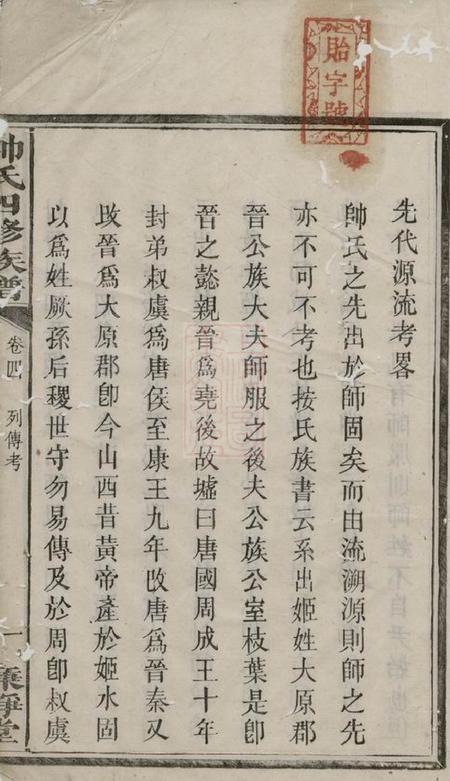 貽字號
先代源流考畧
帥氏之先出於師固矣而由流溯源則師之先
亦不可不考也按氏族書云系出姬姓大原郡
晉公族大夫師服之後夫公族公室枝葉是卽
晉之懿親晉爲堯後故墟曰唐國周成王十年
封弟叔虞爲唐侯至康王九年改唐爲晉秦又
改晉爲大原郡卽今山西昔黃帝產於姬水固
以爲姓厥孫后稷世守勿易傳及於周卽叔虞
帥氏四修族譜
卷四
列傳考
一